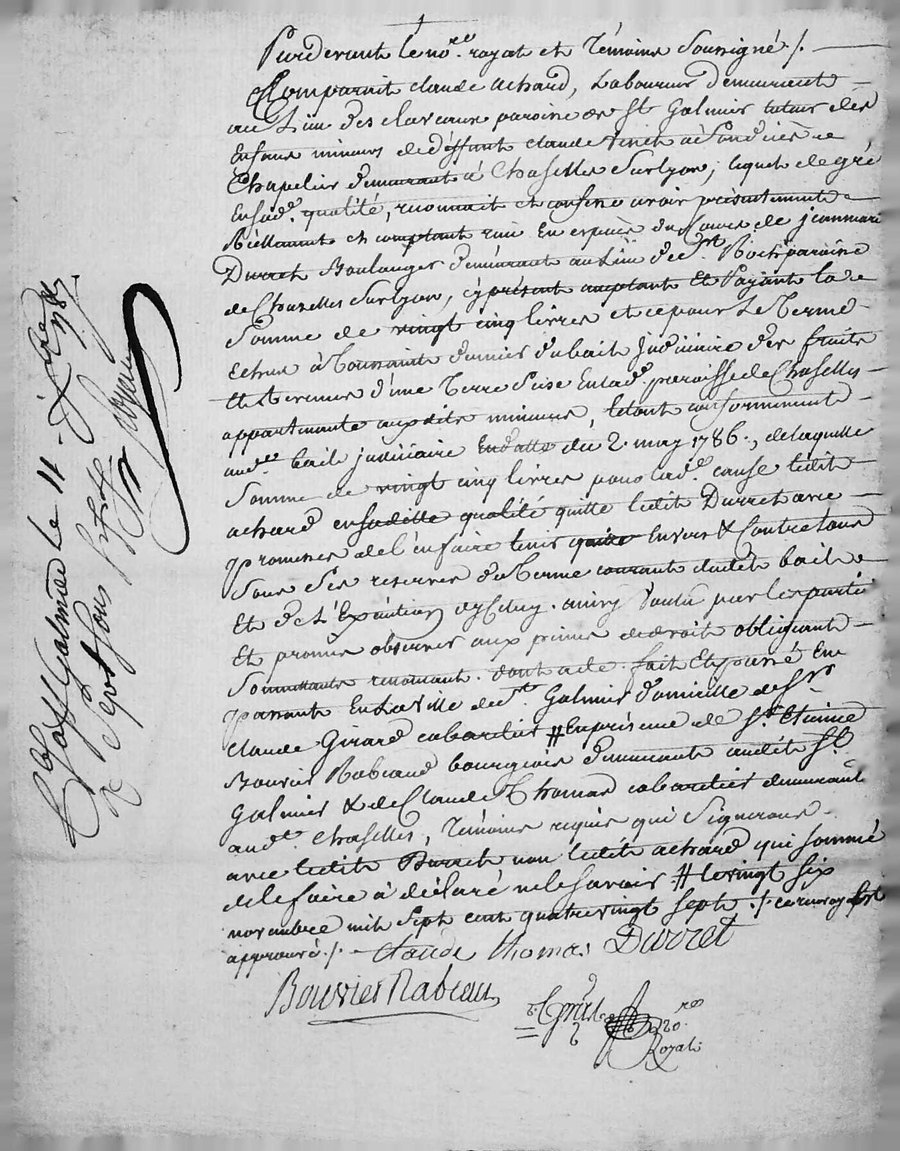 Pardevant le no.re royal et témoins soussigné /.
Comparait claude achard, Laboureur demeurant
au Lieu des claveaux paroisse de St Galmier tuteur des
Enfans mineurs de deffunt claude
Chapelier demeurant à Chaselles surlyon, lequel de gré
Ensad.e qualité, reconnait et confesse avoir présentement
Réellement et comptant reçu En espèces du Cours de jeanmarie
Durret Boulanger demeurant au Lieu de St Roch paroisse
de Chaselles surlyon, cy présent acceptant Et Payant la
Somme de vingt cinq livres et ce pour Le terme
Echeu à toussaints dernier du bail judiciaire des fruits
Et Revenus d'une terre Sise En lad.e paroisse de Chaselles
appartenante auxdits mineurs, le tout conformement
aud.t bail judiciaire En datte du 2. may 1786., de laquelle
Somme de vingt cinq livres pour lad.e cause ledit
achard ensaditte qualité quitte ledit Durret avec
promesse de l'en faire tenir quitte Envers & Contre tous
Sous des reserves du terme courant dudit bail
Et de L'Exécution d'iceluy. ainsy voulu par les parties
Et promis observer aux peines de droit obligeant
Soumettant renonçant. dont acte. fait Et passé En
passant En La ville de St Galmier domicille de Sr
Claude Girard cabaretier # En présence de Sr. Etienne
Bouvier Rabeaud bourgeois demeurant audit St
Galmier & de Claude Thomas cabaretier demeurant
aud.t Chaselles, témoins requis qui Signerons
avec ledit Durret non ledit achard qui sommé
de le faire à déclaré ne le savoir # le vingt six
novembre mil Sept cent quatre vingt sept ./
approuvé /. claude thomas Durret
Bouvier Rabeaud
no.re
Royal
St Galmier le 11. Xbre 1787
R Sept sous six